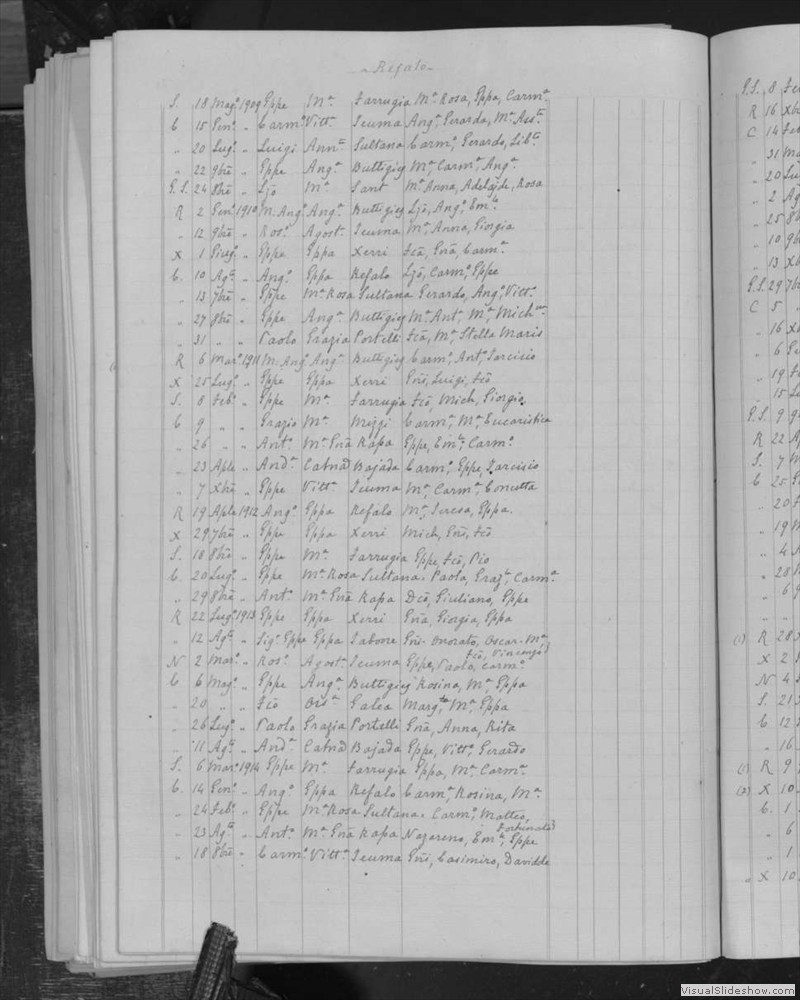 Refalo
S. 18 Magº 1909 Eppe Mª Farrugia Mª Rosa, Eppa, Carmª
C 15 Genº " Carmº Vittª Scuma Angº, Gerardo, Mª Assta
" 20 Lugº " Luigi Annta Sultana Carmº, Gerardo, Libta
" 22 9bre " Eppe Angª Buttigieg Mª, Carmª, Angª
G.S. 24 8bre " Ljo Mª Sant Mª Anna, Adelajde, Rosa
R 2 Genº 1910 M. Angº Angª Buttigieg Ljo, Angº, Emle
" 12 9bre " Rosº Agostª Scuma Mª, Anna, Giorgia
X 1 Giugº " Eppe Eppa Xerri Fca, Gna, Carmª
C. 10 Agto " Angº Eppa Refalo Ljo, Carmº, Eppe
" 13 7bre " Eppe Mª Rosa Sultana Gerardo, Angº, Vittº
" 27 8bre " Eppe Angª Buttigieg Mª Antª, Mª Mich
" 31 " " Paolo Grazia Portelli Fca, Mª, Stella Maris
R 6 Marº 1911 M. Angº Angª Buttigieg Carmº, Antº, Tarcisio
X 25 Lugº " Eppe Eppa Xerri Gni, Luigi, Fco
S. 8 Febº " Eppe Mª Farrugia Fco, Mich, Giorgio
C 9 " " Grazio Mª Mizzi Carmª, Mª, Eucaristica
" 26 " " Antº Mª Gna Rapa Eppe, Emle, Carmº
" 23 Aple " Andª Catna Bajada Carmº, Eppe, Tarcisio
" 7 Xbre " Eppe Vittª Scuma Mª, Carmª, Concetta
R 19 Aple 1912 Angº Eppa Refalo Mª, Teresa, Eppa.
X 29 7bre " Eppe Eppa Xerri Mich, Gni, Fco
S. 18 8bre " Eppe Mª Farrugia Eppe, Fco, Pio
C. 20 Lugº " Eppe Mª Rosa Sultana. Paola, Graz, Carmª
" 29 8bre " Antº Mª Gna Rapa Dco, Giuliano, Eppe
R 22 Lugº 1913 Eppe Eppa Xerri Gna, Giorgia, Eppa
" 12 Agto " Sigr Eppe Eppa Tabone Gni. Onorato, Oscar. Mª
Fco, Vincenzo
N 2 Marº " Rosº Agostª Scuma Eppe, Paolo, Carmº
C 6 Magº " Eppe Angª Buttigieg Rosina, Mª, Eppa
" 20 " " Fco Orsª Galea Margta, Mª, Eppa
" 26 Lugº " Paolo Grazia Portelli Gna, Anna, Rita
" 11 Agto " Andª Catna Bajada Eppe, Vittº, Gerardo
S. 6 Marº 1914 Eppe Mª Farrugia Eppa, Mª, Carmª
C. 14 Genº " Angº Eppa Refalo Carmª, Rosina, Mª
" 24 Febº " Eppe Mª Rosa Sultana. Carmº, Matteo,
Fortunato
" 23 Agto " Antº Mª Gna Rapa Nazareno, Emle, Eppe
" 18 8bre " Carmº Vittª Scuma Gni, Casimiro, Davidde
G.S. 8
R 16
C 14
" 31
" 20
" 2
" 25
" 10
" 13
G.S. 29
C 5
" 16
" 6
" 19
" 15
G.S. 9
R 22
S. 7
C 25
" 20
" 19
" 4
" 28
" 6
" "
R 28
X 2
N 4
S. 21
C 12
" 16
R 9
X 10
C. 1
" 6
" 1
" X 10
VisualSlideshow.com